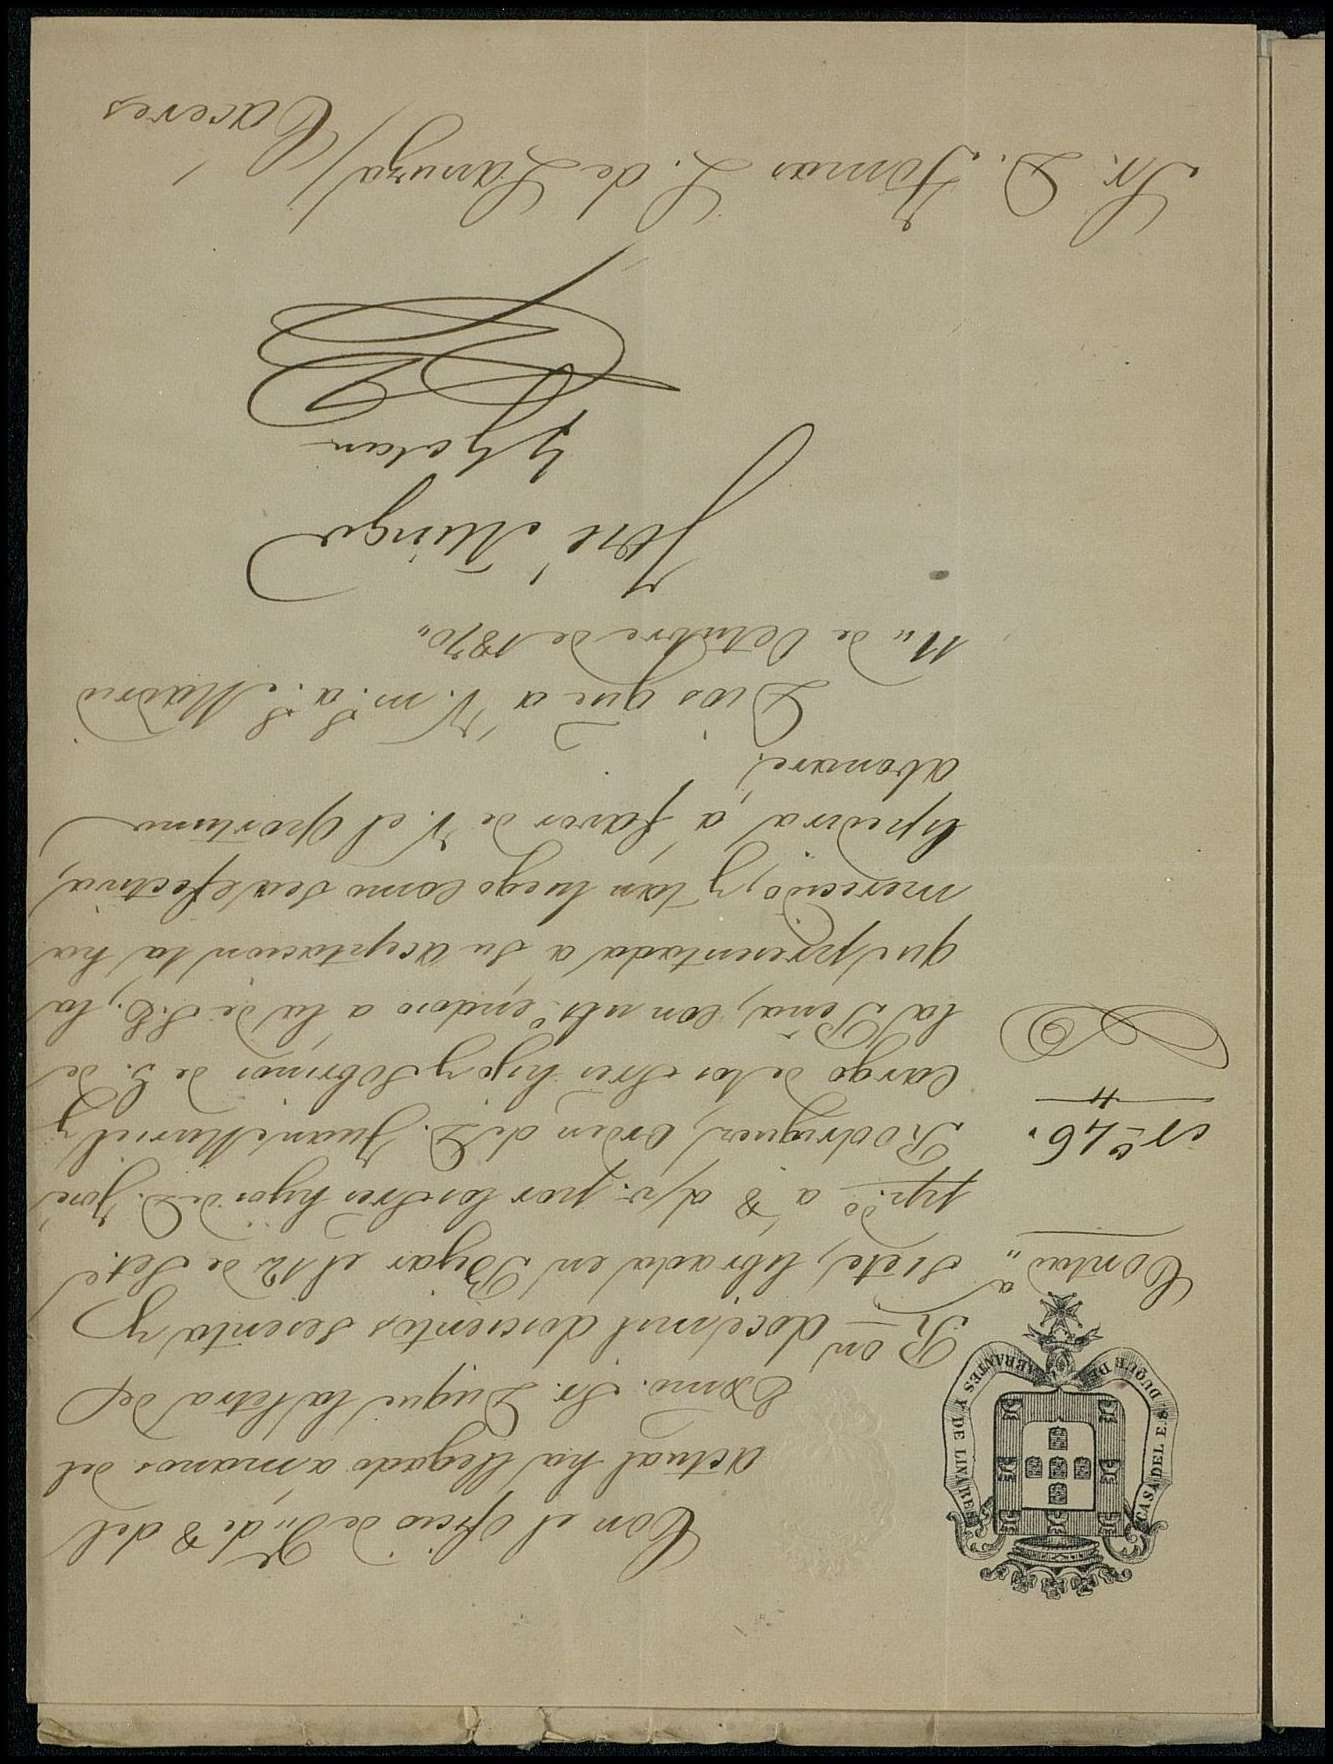 CASA DEL E.S. DUQUE DE ABRANTES Y DE LINARES
Contad.ª
Nº 46.
4
Con el oficio de V. de 8 del
actual ha llegado a manos del
Exmo. Sr. Duque la letra de
R.on doce mil doscientos sesenta y
siete, librada en Bejar el 12 de Set.e
pp.do a 8 d/v. por los Sres hijos de D. José
Rodriguez, orden de D. Juan Muriel y
cargo de los Sres hijo y sobrinos de G. de
la Peña, con ult.º endoso a la de S.E., la
que presentada a su aceptacion la ha
merecido, y tan luego como sea efectiva,
espedirá á favor de V. el oportuno
abonaré.
Dios gue a V. m.s a.s Madrid
11 de Octubre de 1870
José Mingo
Sr. D. Tomas L. de Lanuza / Caceres